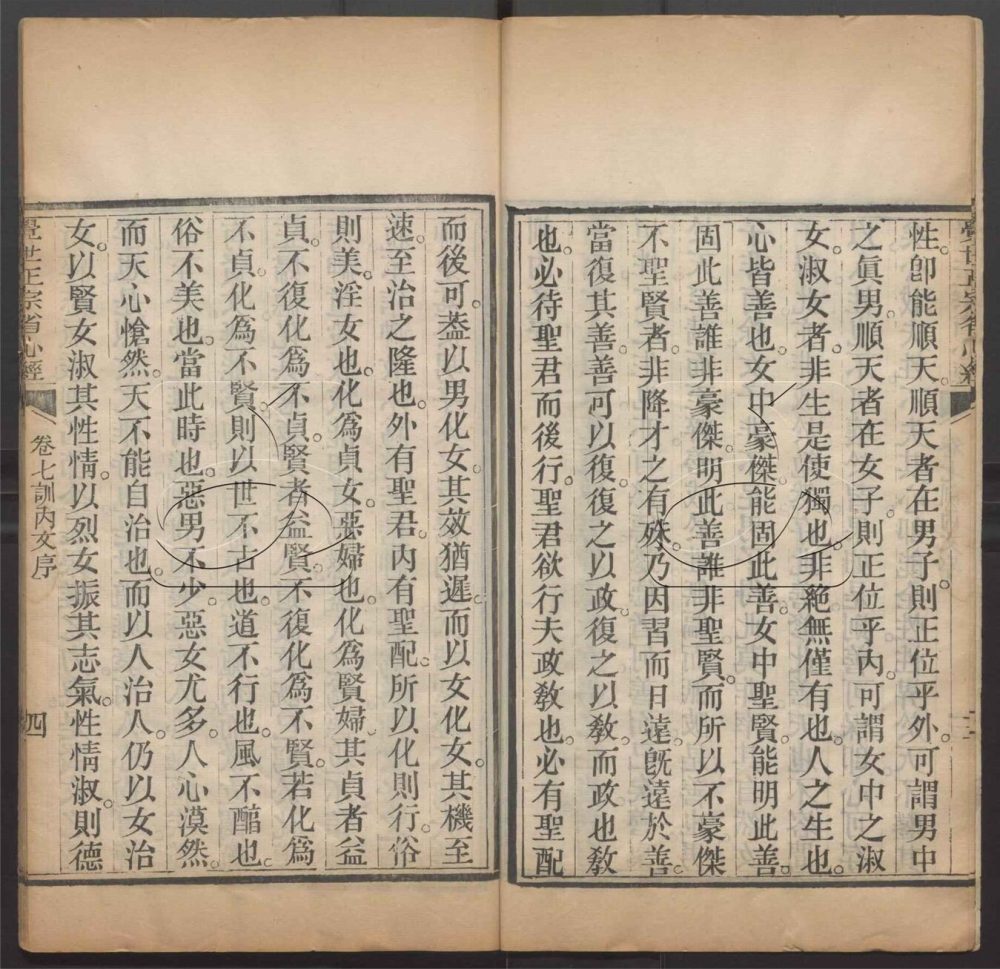 性。卽能順天。順天者在男子。則正位乎外。可謂男中
之眞男。順天者在女子。則正位乎內。可謂女中之淑
女。淑女者。非生是使獨也。非絕無僅有也。人之生也。
心皆善也。女中豪傑。能固此善。女中聖賢。能明此善。
固此善。誰非豪傑。明此善。誰非聖賢。而所以不豪傑
不聖賢者。非降才之有殊。乃因習而日遠。旣遠於善。
當復其善。善可以復。復之以政。復之以敎。而政也敎
也。必待聖君而後行。聖君欲行夫政敎也。必有聖配
而後可。葢以男化女。其效猶遲。而以女化女。其機至
速。至治之隆也。外有聖君。內有聖配。所以化則行。俗
則美。淫女也。化爲貞女。惡婦也。化爲賢婦。其貞者益
貞。不復化爲不貞。賢者益賢。不復化爲不賢。若化爲
不貞。化爲不賢。則以世不古也。道不行也。風不醕也。
俗不美也。當此時也。惡男不少。惡女尤多。人心漠然。
而天心愴然。天不能自治也。而以人治人。仍以女治
女。以賢女淑其性情。以烈女振其志氣。性情淑。則德
覺世正宗省心經 卷七訓內文序 四